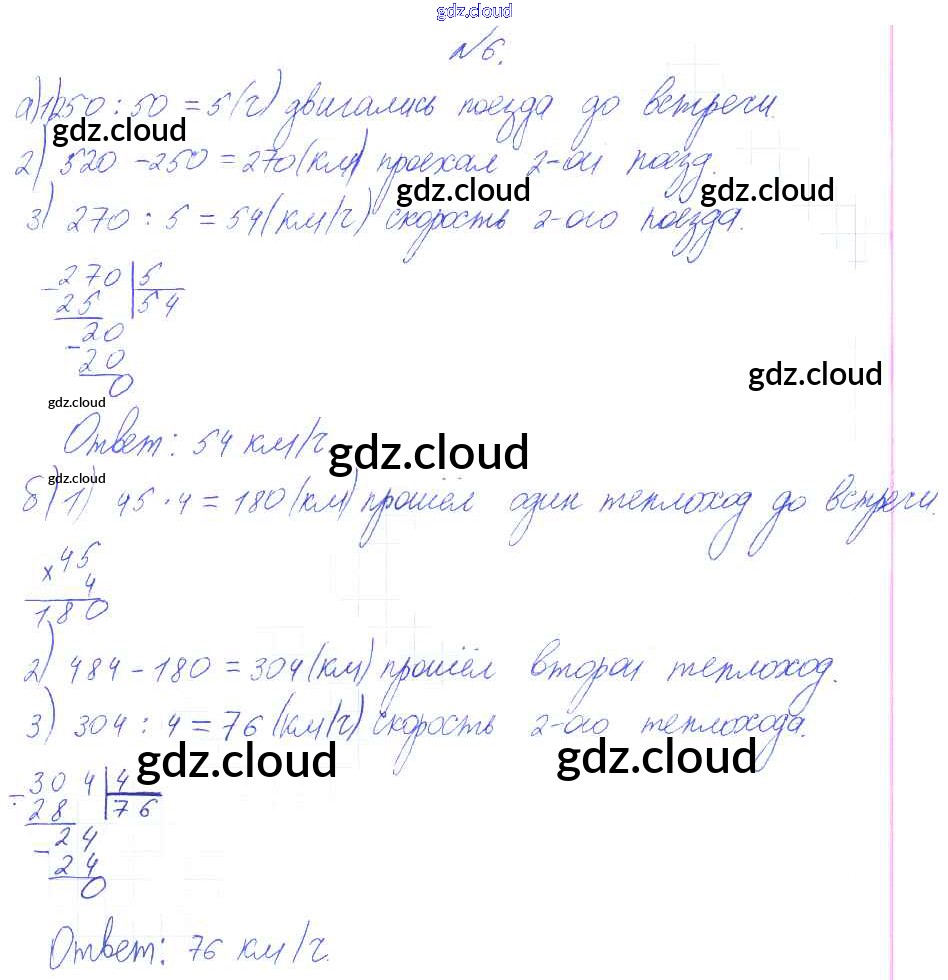 gdz.cloud
№6.
а) 1) 250 : 50 = 5 (ч) двигались поезда до встречи.
gdz.cloud
2) 520 - 250 = 270 (км) проехал 2-ой поезд.
gdz.cloud gdz.cloud
3) 270 : 5 = 54 (км/ч) скорость 2-ого поезда.
- 270 | 5
25 | 54
- 20
20
0
gdz.cloud
gdz.cloud
Ответ: 54 км/ч.
gdz.cloud
gdz.cloud
б) 1) 45 · 4 = 180 (км) прошёл один теплоход до встречи.
× 45
4
180
2) 484 - 180 = 304 (км) прошёл второй теплоход.
3) 304 : 4 = 76 (км/ч) скорость 2-ого теплохода.
gdz.cloud gdz.cloud
- 304 | 4
28 | 76
- 24
24
0
Ответ: 76 км/ч.